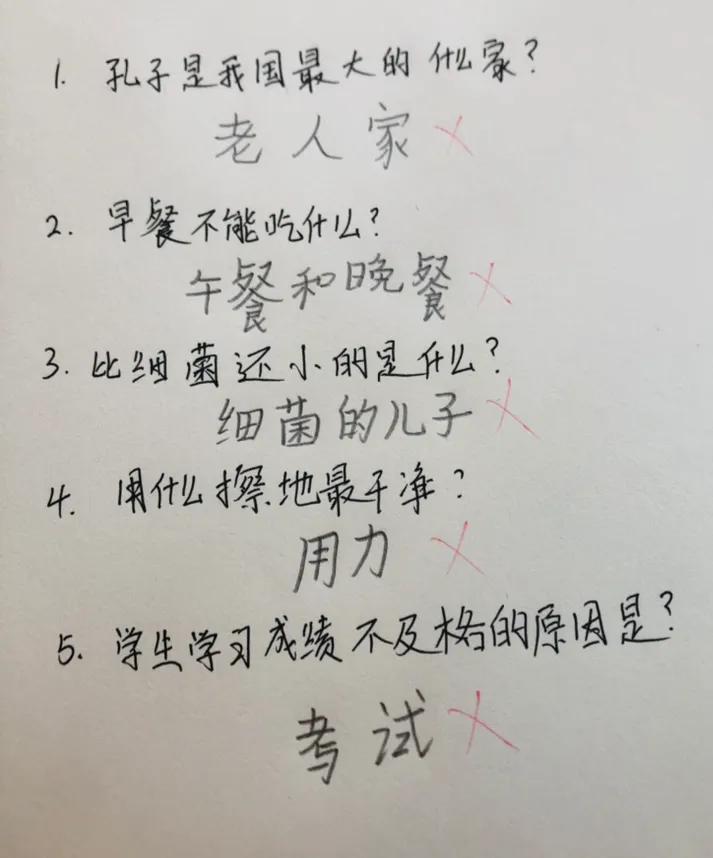 1. 孔子是我国最大的什么家?
老人家
2. 早餐不能吃什么?
午餐和晚餐
3. 比细菌还小的是什么?
细菌的儿子
4. 用什么擦地最干净?
用力
5. 学生学习成绩不及格的原因是?
考试